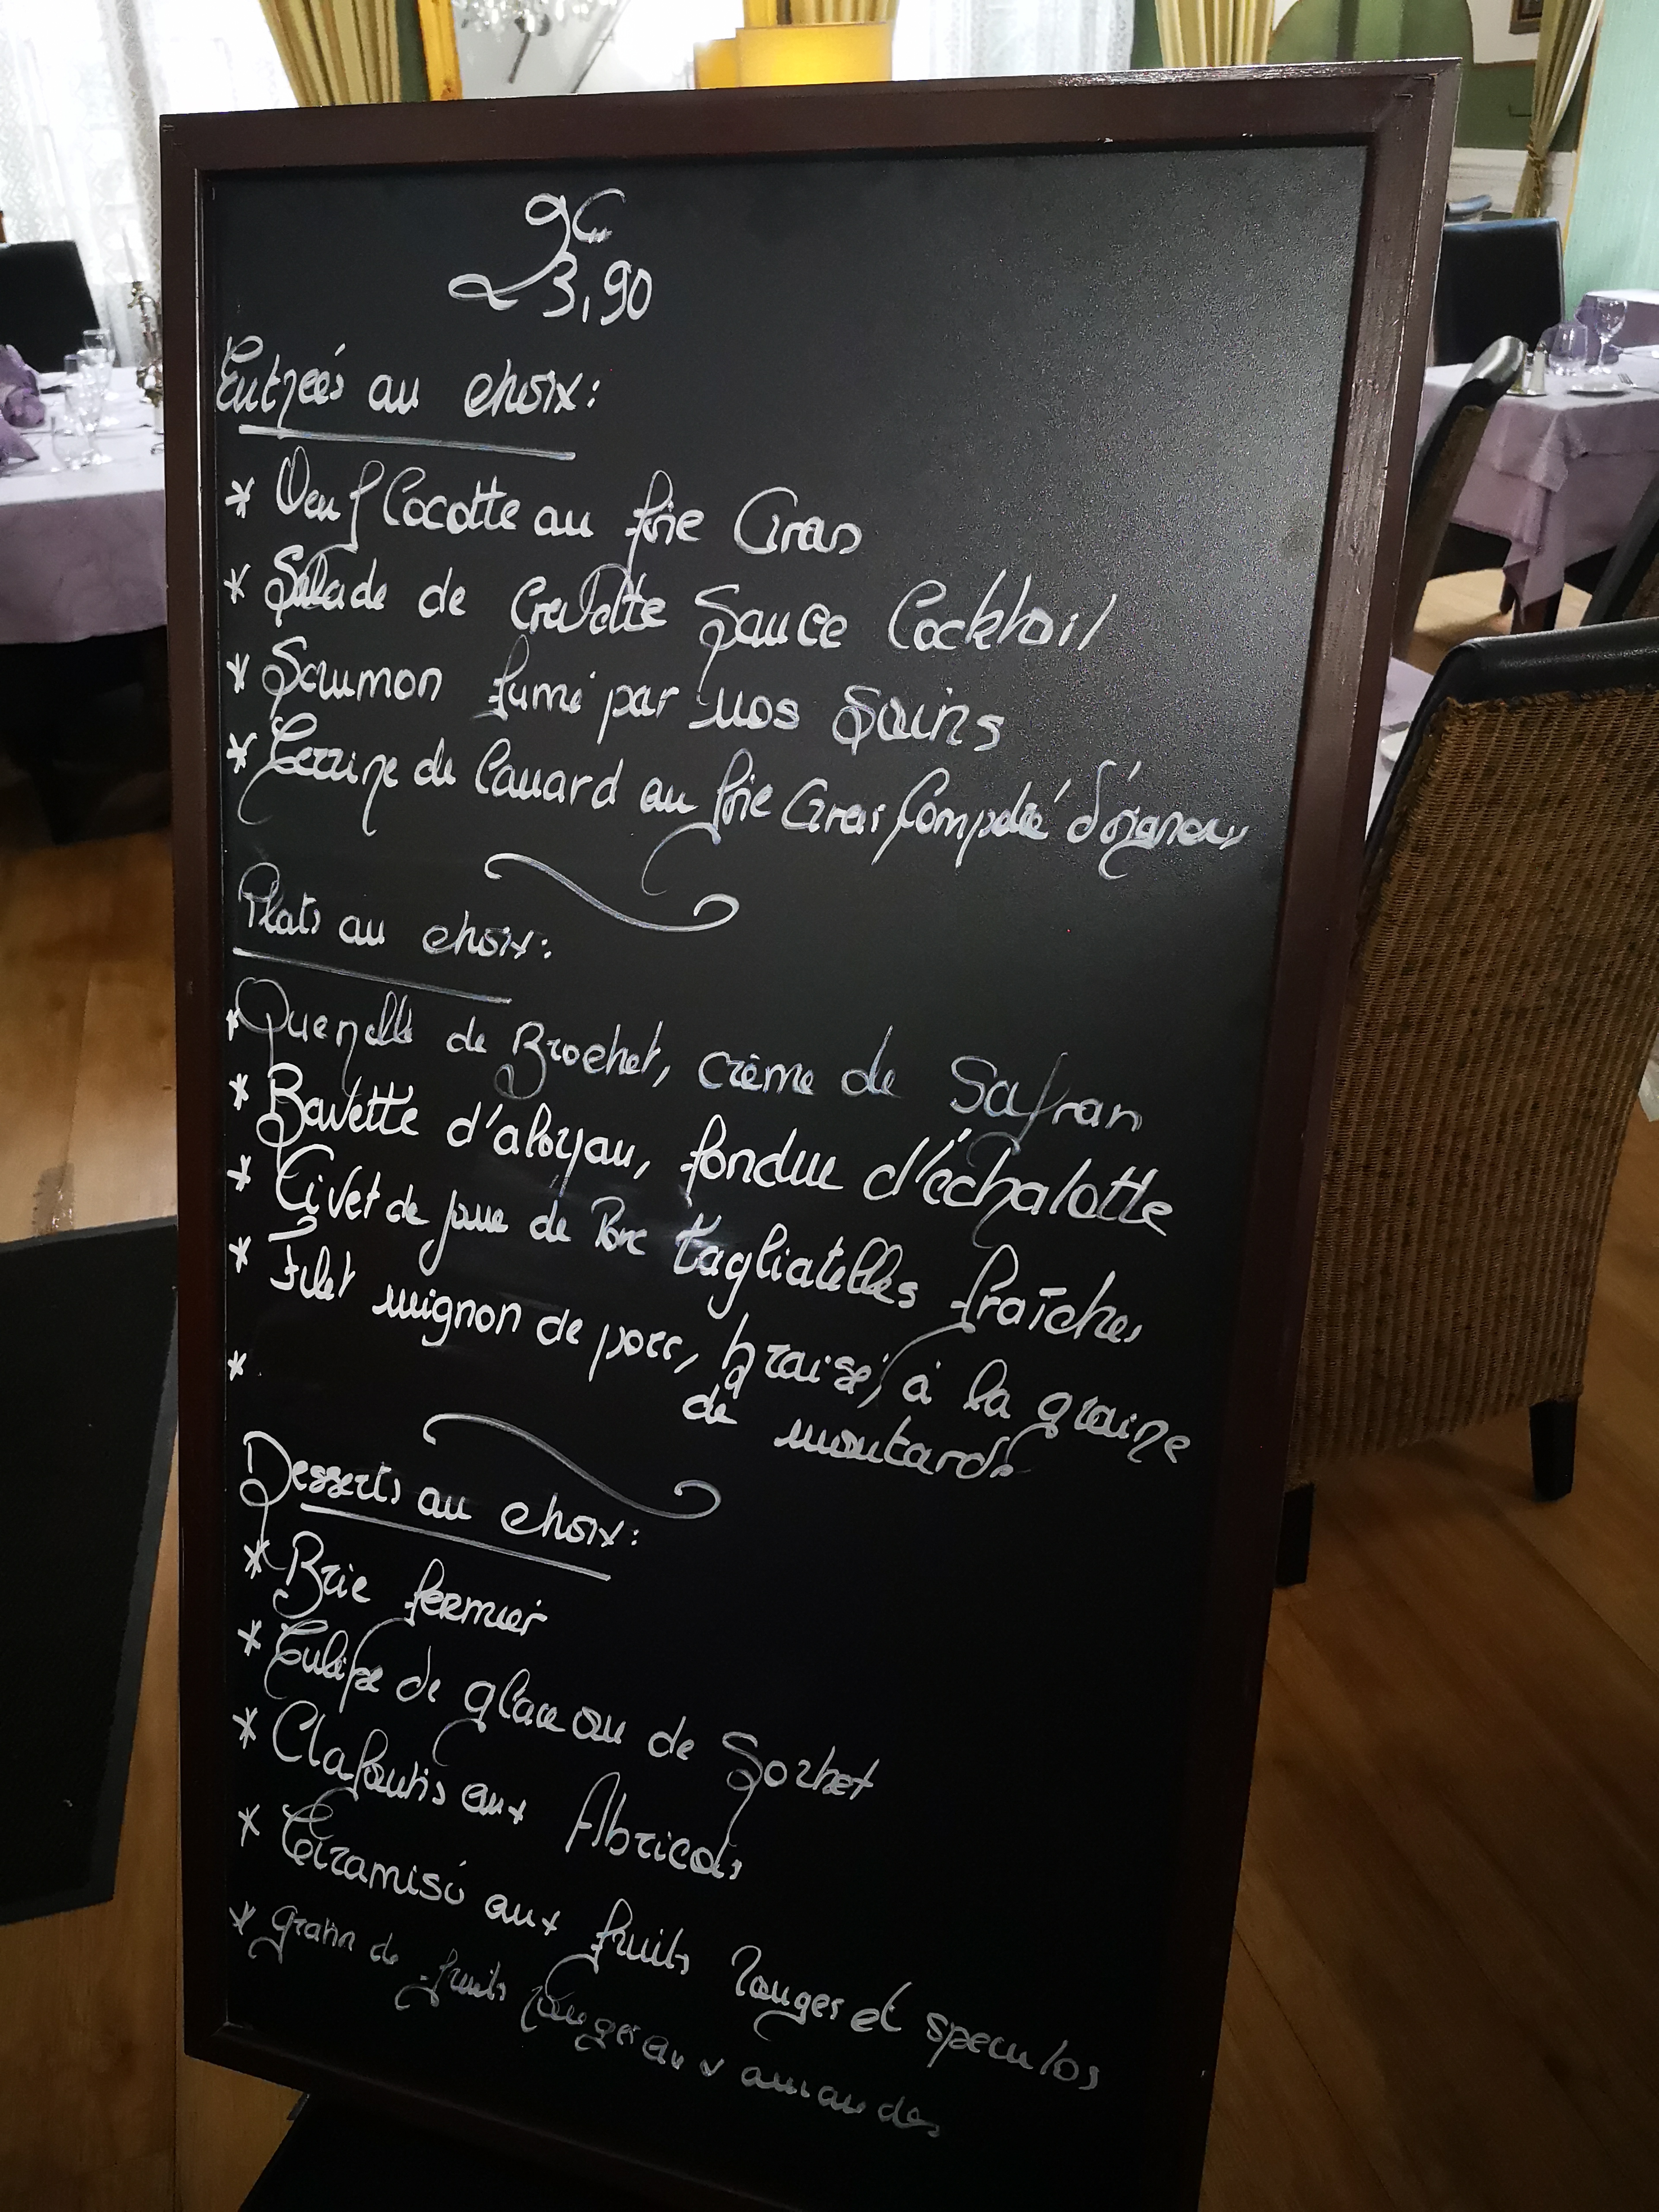 23,90
Entrées au choix:
* Oeuf Cocotte au foie Gras
* Salade de Crevette Sauce Cocktail
* Saumon fumé par nos Soins
* Terrine de Canard au foie Gras Compoté d'oignons
Plats au choix:
* Quenelle de Brochet, crème de Safran
* Bavette d'aloyau, fondue d'échalotte
* Civet de joue de Porc tagliatelles fraîches
* Filet mignon de porc, braisé, à la graine
de moutarde
*
Desserts au choix:
* Brie fermier
* Tulipe de glace ou de Sorbet
* Clafoutis aux Abricots
* Tiramisú aux fruits Rouges et speculos
* gratin de fruits Rouges aux amandes